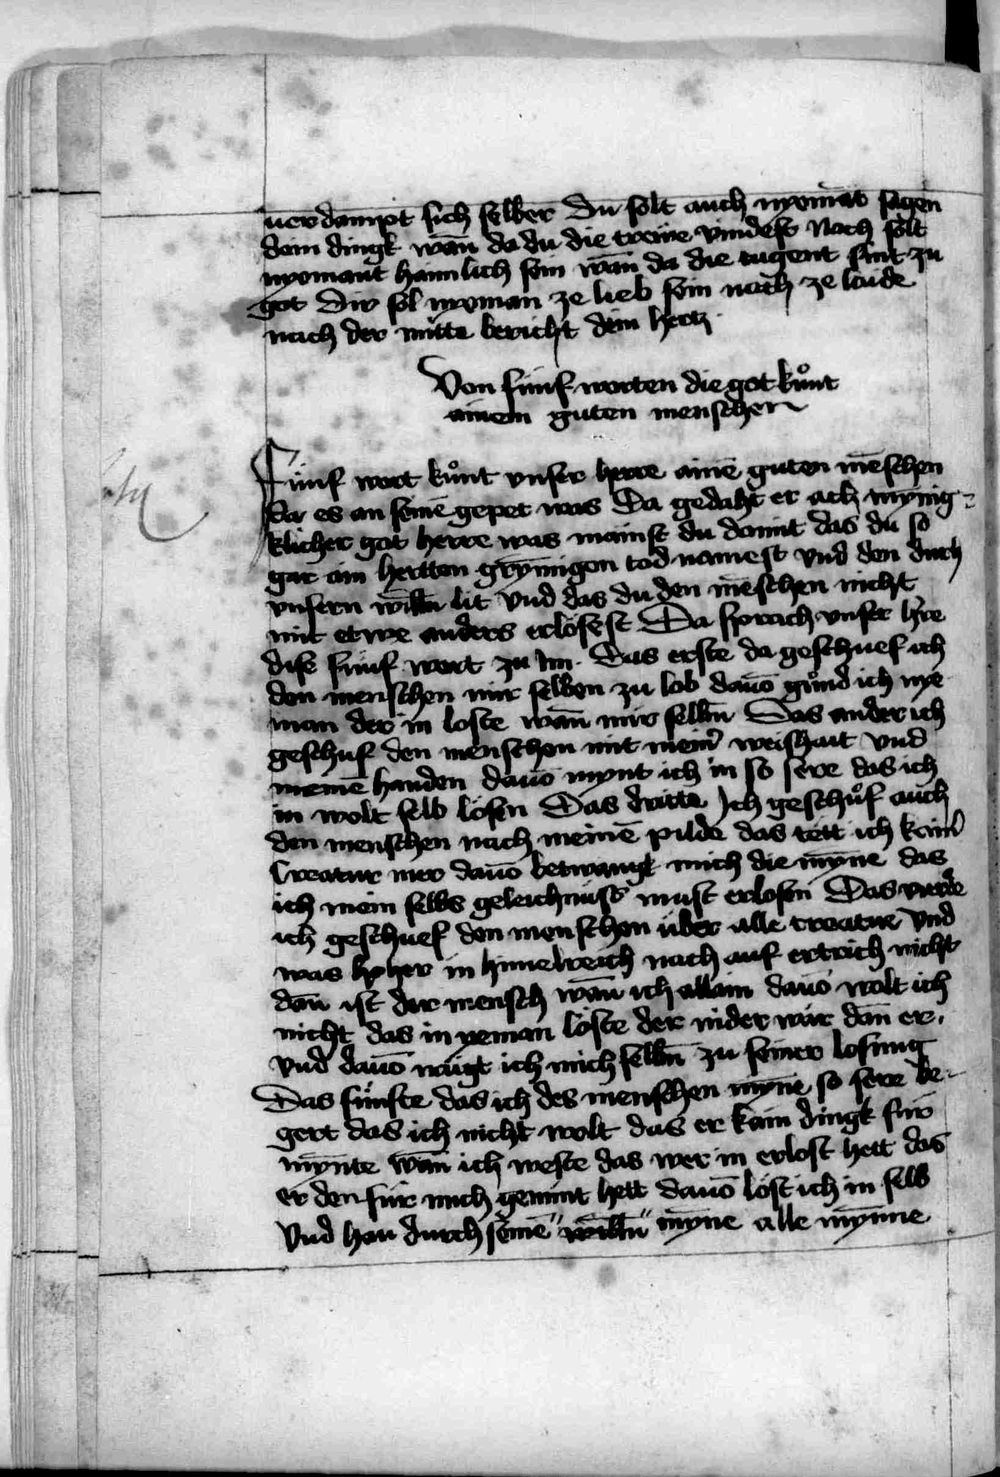 uerdampt sich selber Du solt auch nyemāt sagen
dein dingk wān da du die trewe vindest Noch solt
nyemant haimlich sein wān da die tugent sint zu
got Dir sol nyeman ze lieb sein noch ze laide
nach der mitte bericht dein hertz
Von fünf worten die got kůnt
ainem guten menschen
Fünf wort kůnt vnser herre ainē guten mēschen
da es an seinē gepet was Da gedaht er ach mynig-
klicher got herre was mainst du damit das du so
gar ain hertten grymigen tod namest vnd den durch
vnsern willn lit Vnd das du den mēschen nicht
mit etwe anders erlösest Da sprach vnser hre
dise fünf wort zu im. Das erste da geschuef ich
den menschen mir selben zu lob dauō gůnd ich nye
man der in loste wān mir selbn Das ander ich
geschuf den menschen mit meinr weishait vnd
meinē handen dauō mynt ich in so sere das ich
in wolt selb lösen Das dritte Ich geschůf auch
den menschen nach meinē pilde das tett ich kainr
Creatur mer dauō betwangk mich die myne das
ich mein selbs geleichnüss must erlosen Das vierde
ich geschuef den menschen über alle creatur Vnd
was hoher in himelreich noch auf ertrich nicht
dān ist der mensch wān ich allain dauō wolt ich
nicht das in yeman löste der nider wär dān er.
vnd dauō naigt ich mich selbn zu seiner losung
Das fünfte das ich des menschen myne so sere be-
gert das ich nicht wolt das er kain dingk für
mynte wān ich weste das wer in erlost hett das
er den für mich gemint hett dauō löst ich in selb
Vnd han durch seinē willn myne alle mynne